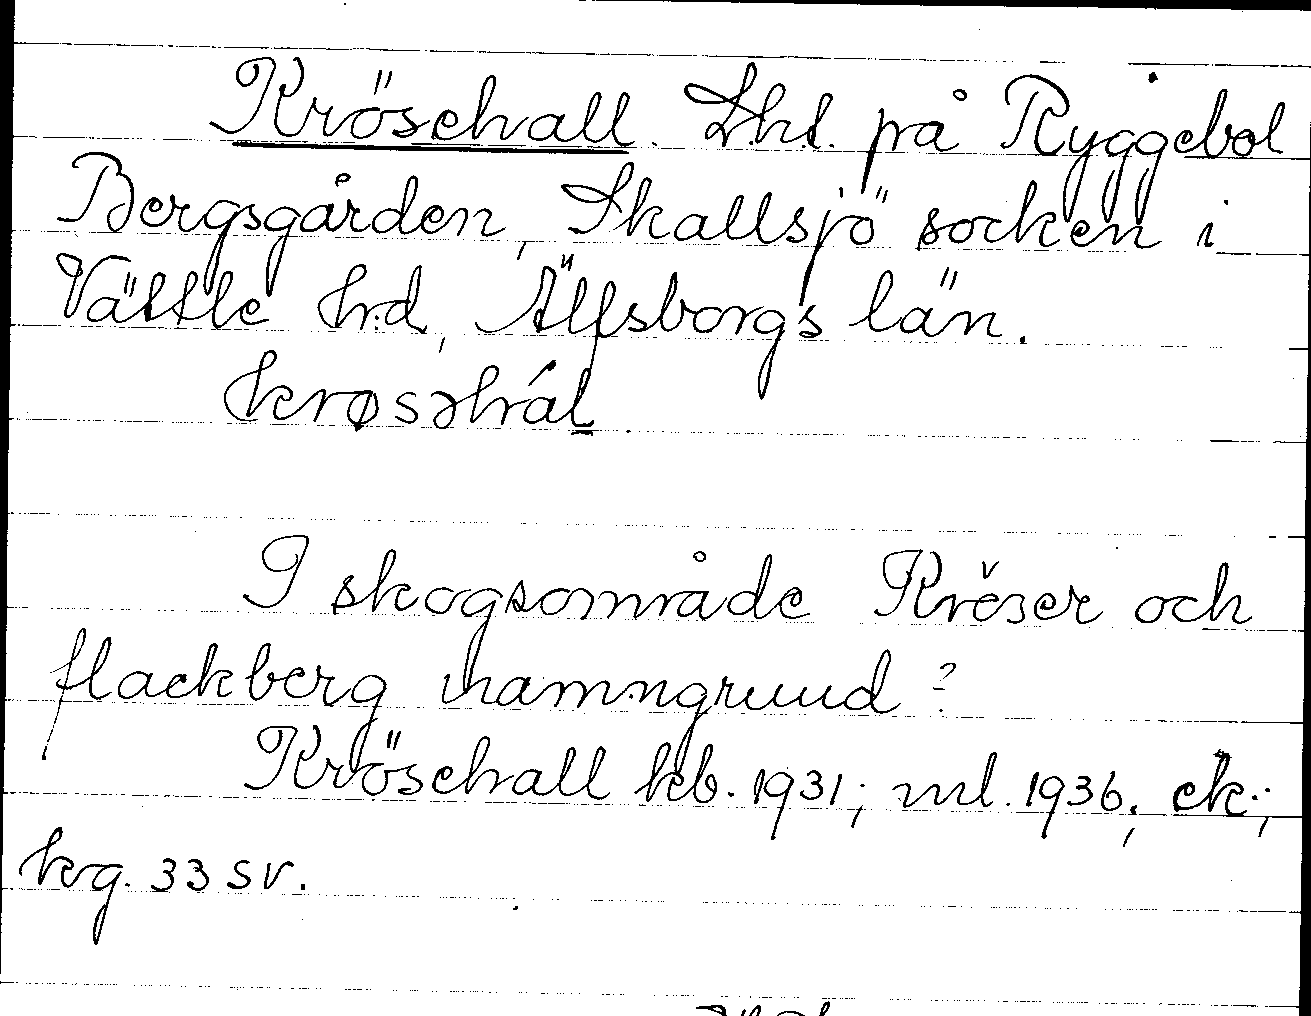 Krösehall. Lht. på Ryggebol
Bergsgården, Skallsjö socken i
Vättle hd, Älfsborgs län.
krøsəhál.
I skogsområde Krěser och
flackberg namngrund?
Krösehall kb. 1931; ml. 1936; ek.;
krg. 33 sv.